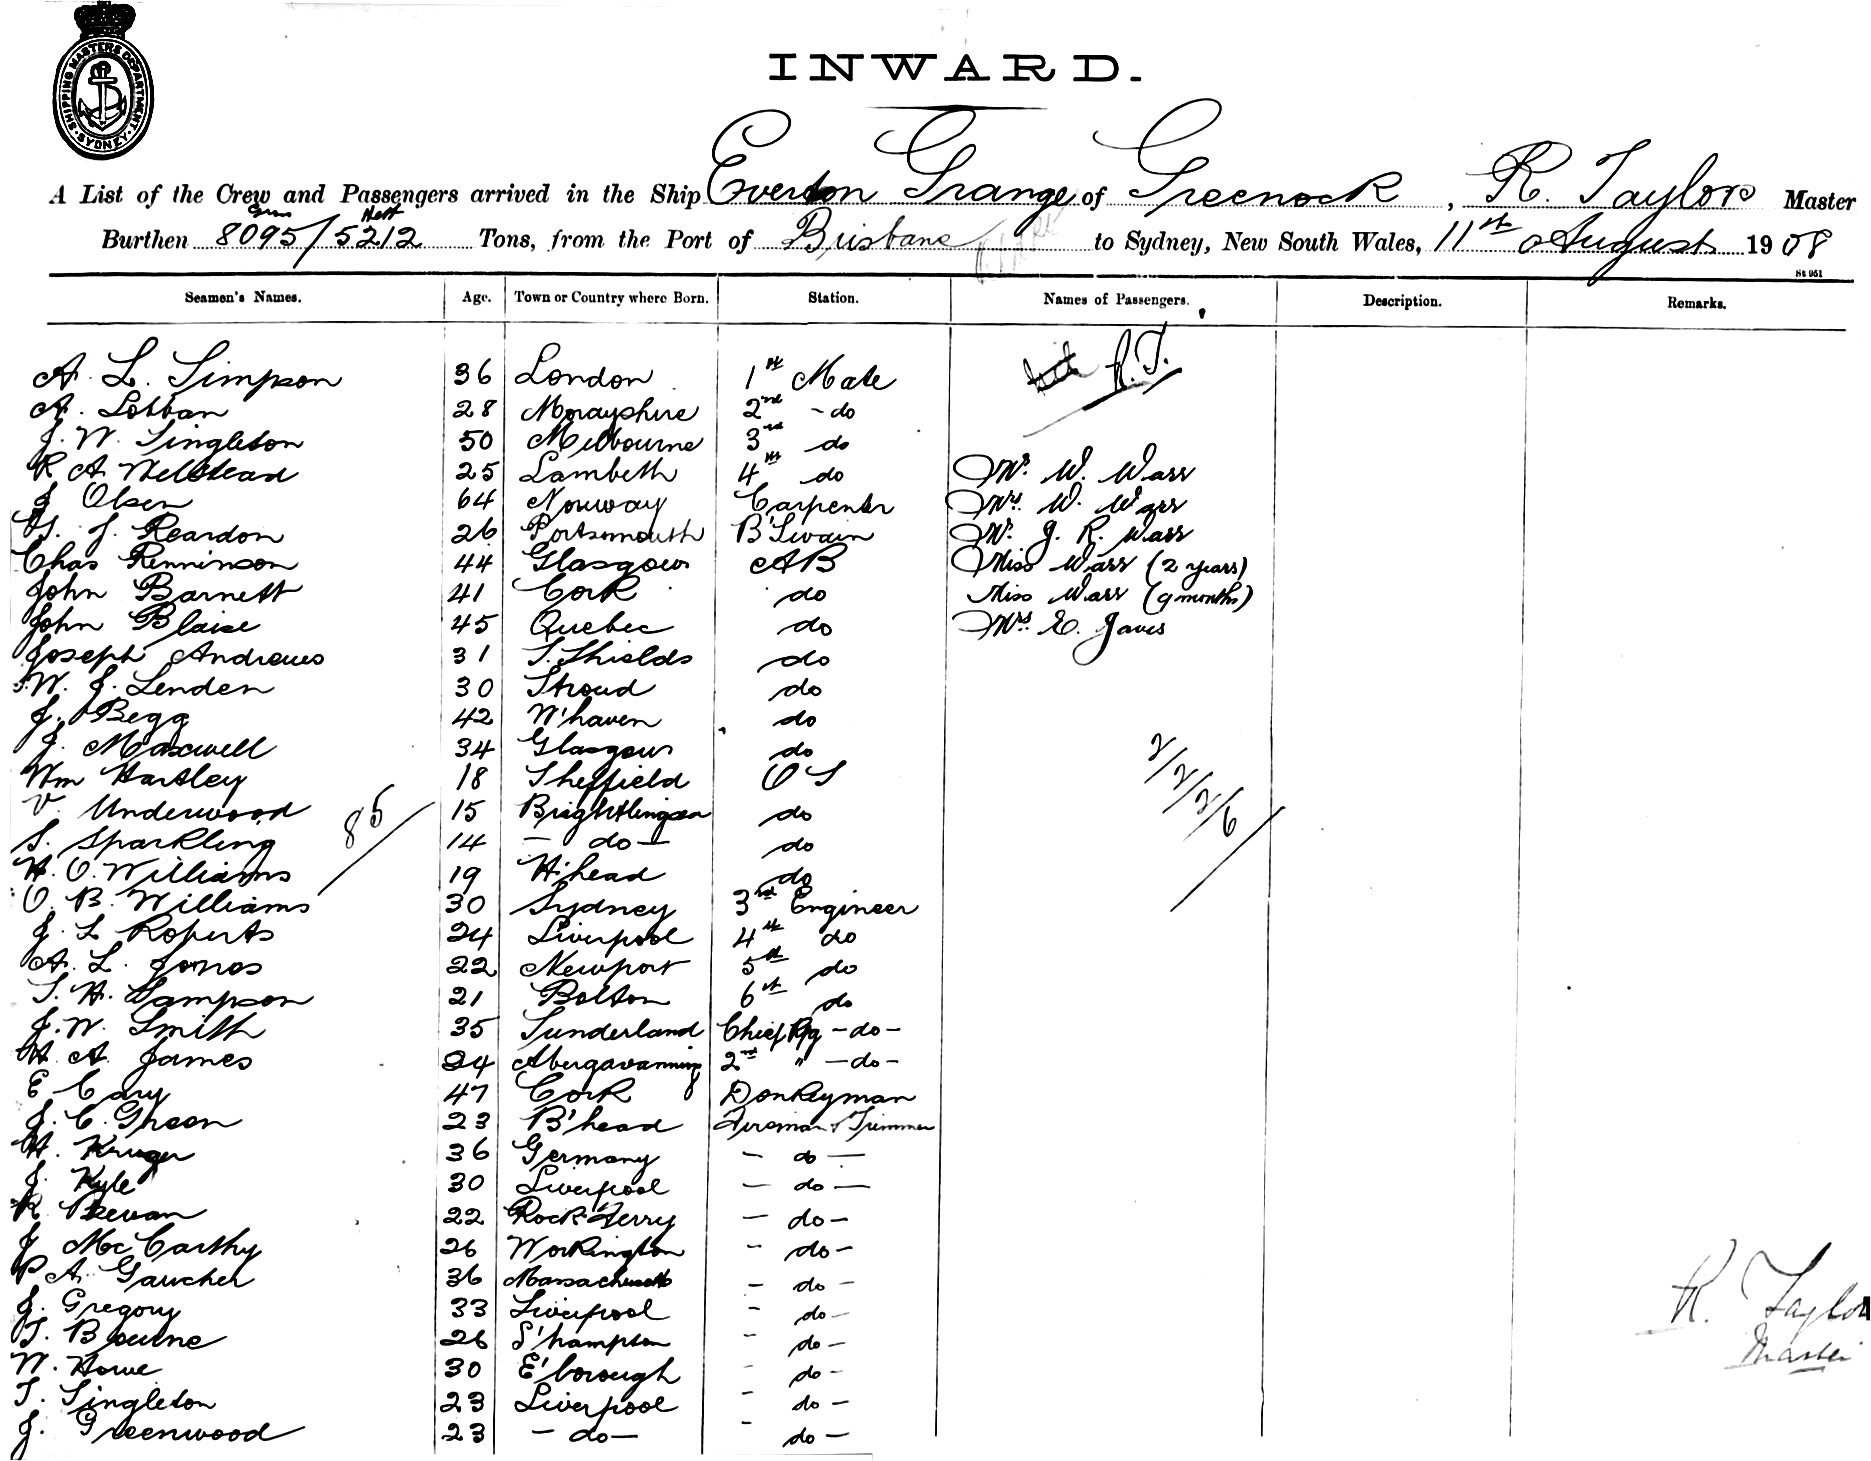 SHIPPING MASTERS DEPARTMENT
SYDNEY
INWARD.
A List of the Crew and Passengers arrived in the Ship Everton Grange of Greenock, R. Taylor Master
Gross Nett
Burthen 8095/5212 Tons, from the Port of Brisbane to Sydney, New South Wales, 11th August 1908
St 951
Seamen's Names. Age. Town or Country where Born. Station. Names of Passengers. Description. Remarks.
A. L. Simpson 36 London 1st Mate R.T.
A. Lobban 28 Morayshire 2nd - do
J. W. Singleton 50 Melbourne 3rd do
R A Welstead 25 Lambeth 4th do Mr. W. Warr
J Olsen 64 Norway Carpenter Mrs. W. Warr
J. Reardon 26 Portsmouth B'Swain Mr. J. R. Warr
Chas Renninson 44 Glasgow AB Miss Warr (2 years)
John Barnett 41 Cork do Miss Warr (9 months)
John Blaise 45 Quebec do Mrs. E.
Joseph Andrews 31 S. Shields do
W. J. Lenden 30 Stroud do
J. Begg 42 W'haven do
J. Maxwell 34 Glasgow do
Wm Hartley 18 Sheffield OS 2/2/2/6/
V. Underwood 15 Brightlingsea do
85/
S. Sparkling 14 - do - do
H. O. Williams 19 H'head do
O. B. Williams 30 Sydney 3rd Engineer
J. L Roberts 24 Liverpool 4th do
A. L. Jones 22 Newport 5th do
S. H. Sampson 21 Bolton 6th do
J. W. Smith 35 Sunderland Chief Rfg - do -
H. A. James 24 Abergavanning 2nd " - do -
E Cary 47 Cork Donkeyman
J. C. Green 23 B'head Fireman & Trimmer
H. Kruger 36 Germany - do -
J. Kyle 30 Liverpool - do -
R Bevan 22 Rock Ferry - do -
J McCarthy 26 Workington - do -
P A. Gaucher 36 Massachusetts - do -
J. Gregory 33 Liverpool - do -
T. Bourne 26 S'hampton - do -
W. Howe 30 E'borough - do -
T. Singleton 23 Liverpool - do -
J. Greenwood 23 - do - - do -
R. Taylor
Master